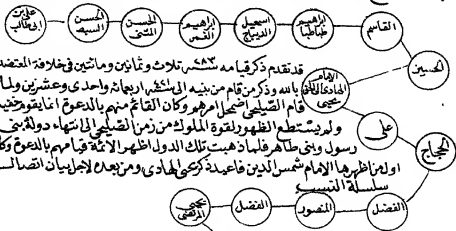 علي بن أبي طالب
الحسن السبط
الحسن المثنى
إبراهيم الغمر
اسمعيل الديباج
إبراهيم طباطبا
القاسم
الحسين
الإمام الهادي إلى الحق يحيى
علي
الحجاج
قد تقدم ذكر قيامه سنة ٢٨٣ ثلاث وثمانين ومائتين في خلافة المعتضد
بالله وذكر من قام من بنيه إلى سنة ٤٢١ اربعمائة واحدى وعشرين ولما
قام الصليحي اضمحل امرهم وكان القائم منهم بالدعوة انما يقوم خفية
ولم يستطع الظهور لقوة الملوك من زمن الصليحي إلى انتهاء دولة بني
رسول وبني طاهر فلما ذهبت تلك الدول اظهر الائمة قيامهم بالدعوة وكان
اول من اظهرها الامام شمس الدين فاعيد ذكر يحيى الهادي ومن بعده لاجل بيان اتصال
سلسلة النسب
الفضل
المنصور
الفضل
يحيى المرتضى